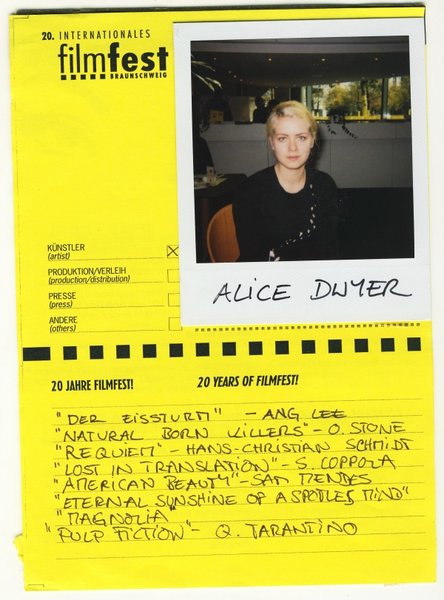 20. INTERNATIONALES
filmfest
BRAUNSCHWEIG
KÜNSTLER
(artist)
PRODUKTION/VERLEIH
(production/distribution)
PRESSE
(press)
ANDERE
(others)
ALICE DWYER
20 JAHRE FILMFEST! 20 YEARS OF FILMFEST!
"DER EISSTURM" - ANG LEE
"NATURAL BORN KILLERS" - O. STONE
"REQUIEM" - HANS-CHRISTIAN SCHMIDT
"LOST IN TRANSLATION" - S. COPPOLA
"AMERICAN BEAUTY" - SAM MENDES
"ETERNAL SUNSHINE OF A SPOTLES MIND"
"MAGNOLIA"
"PULP FICTION" - Q. TARANTINO